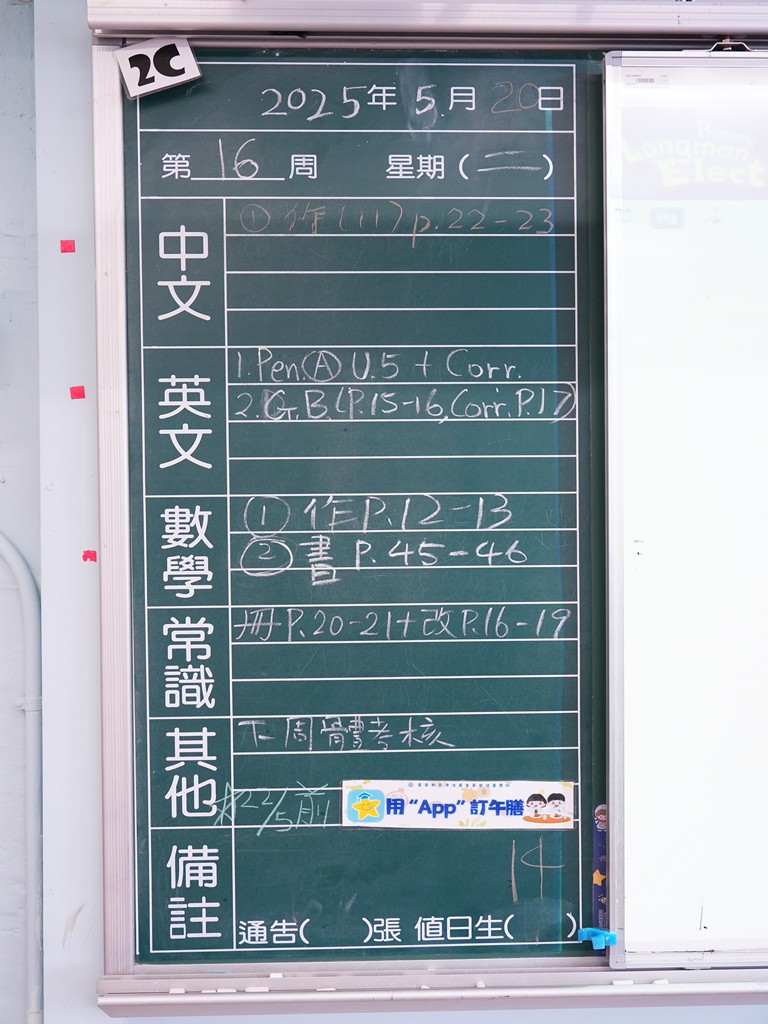 2C
2025年5月20日
第16周 星期(二)
中文
① 作(11)p.22-23
英文
1.Pen.Ⓐ U.5 + Corr.
2.G.B.(P.15-16,Corr.P.17)
數學
① 作P.12-13
② 書P.45-46
常識
冊P.20-21+改P.16-19
其他
下周體考核
22/5前
用“App”訂午膳
備註
14
通告( )張 值日生( )
Longman
Elect